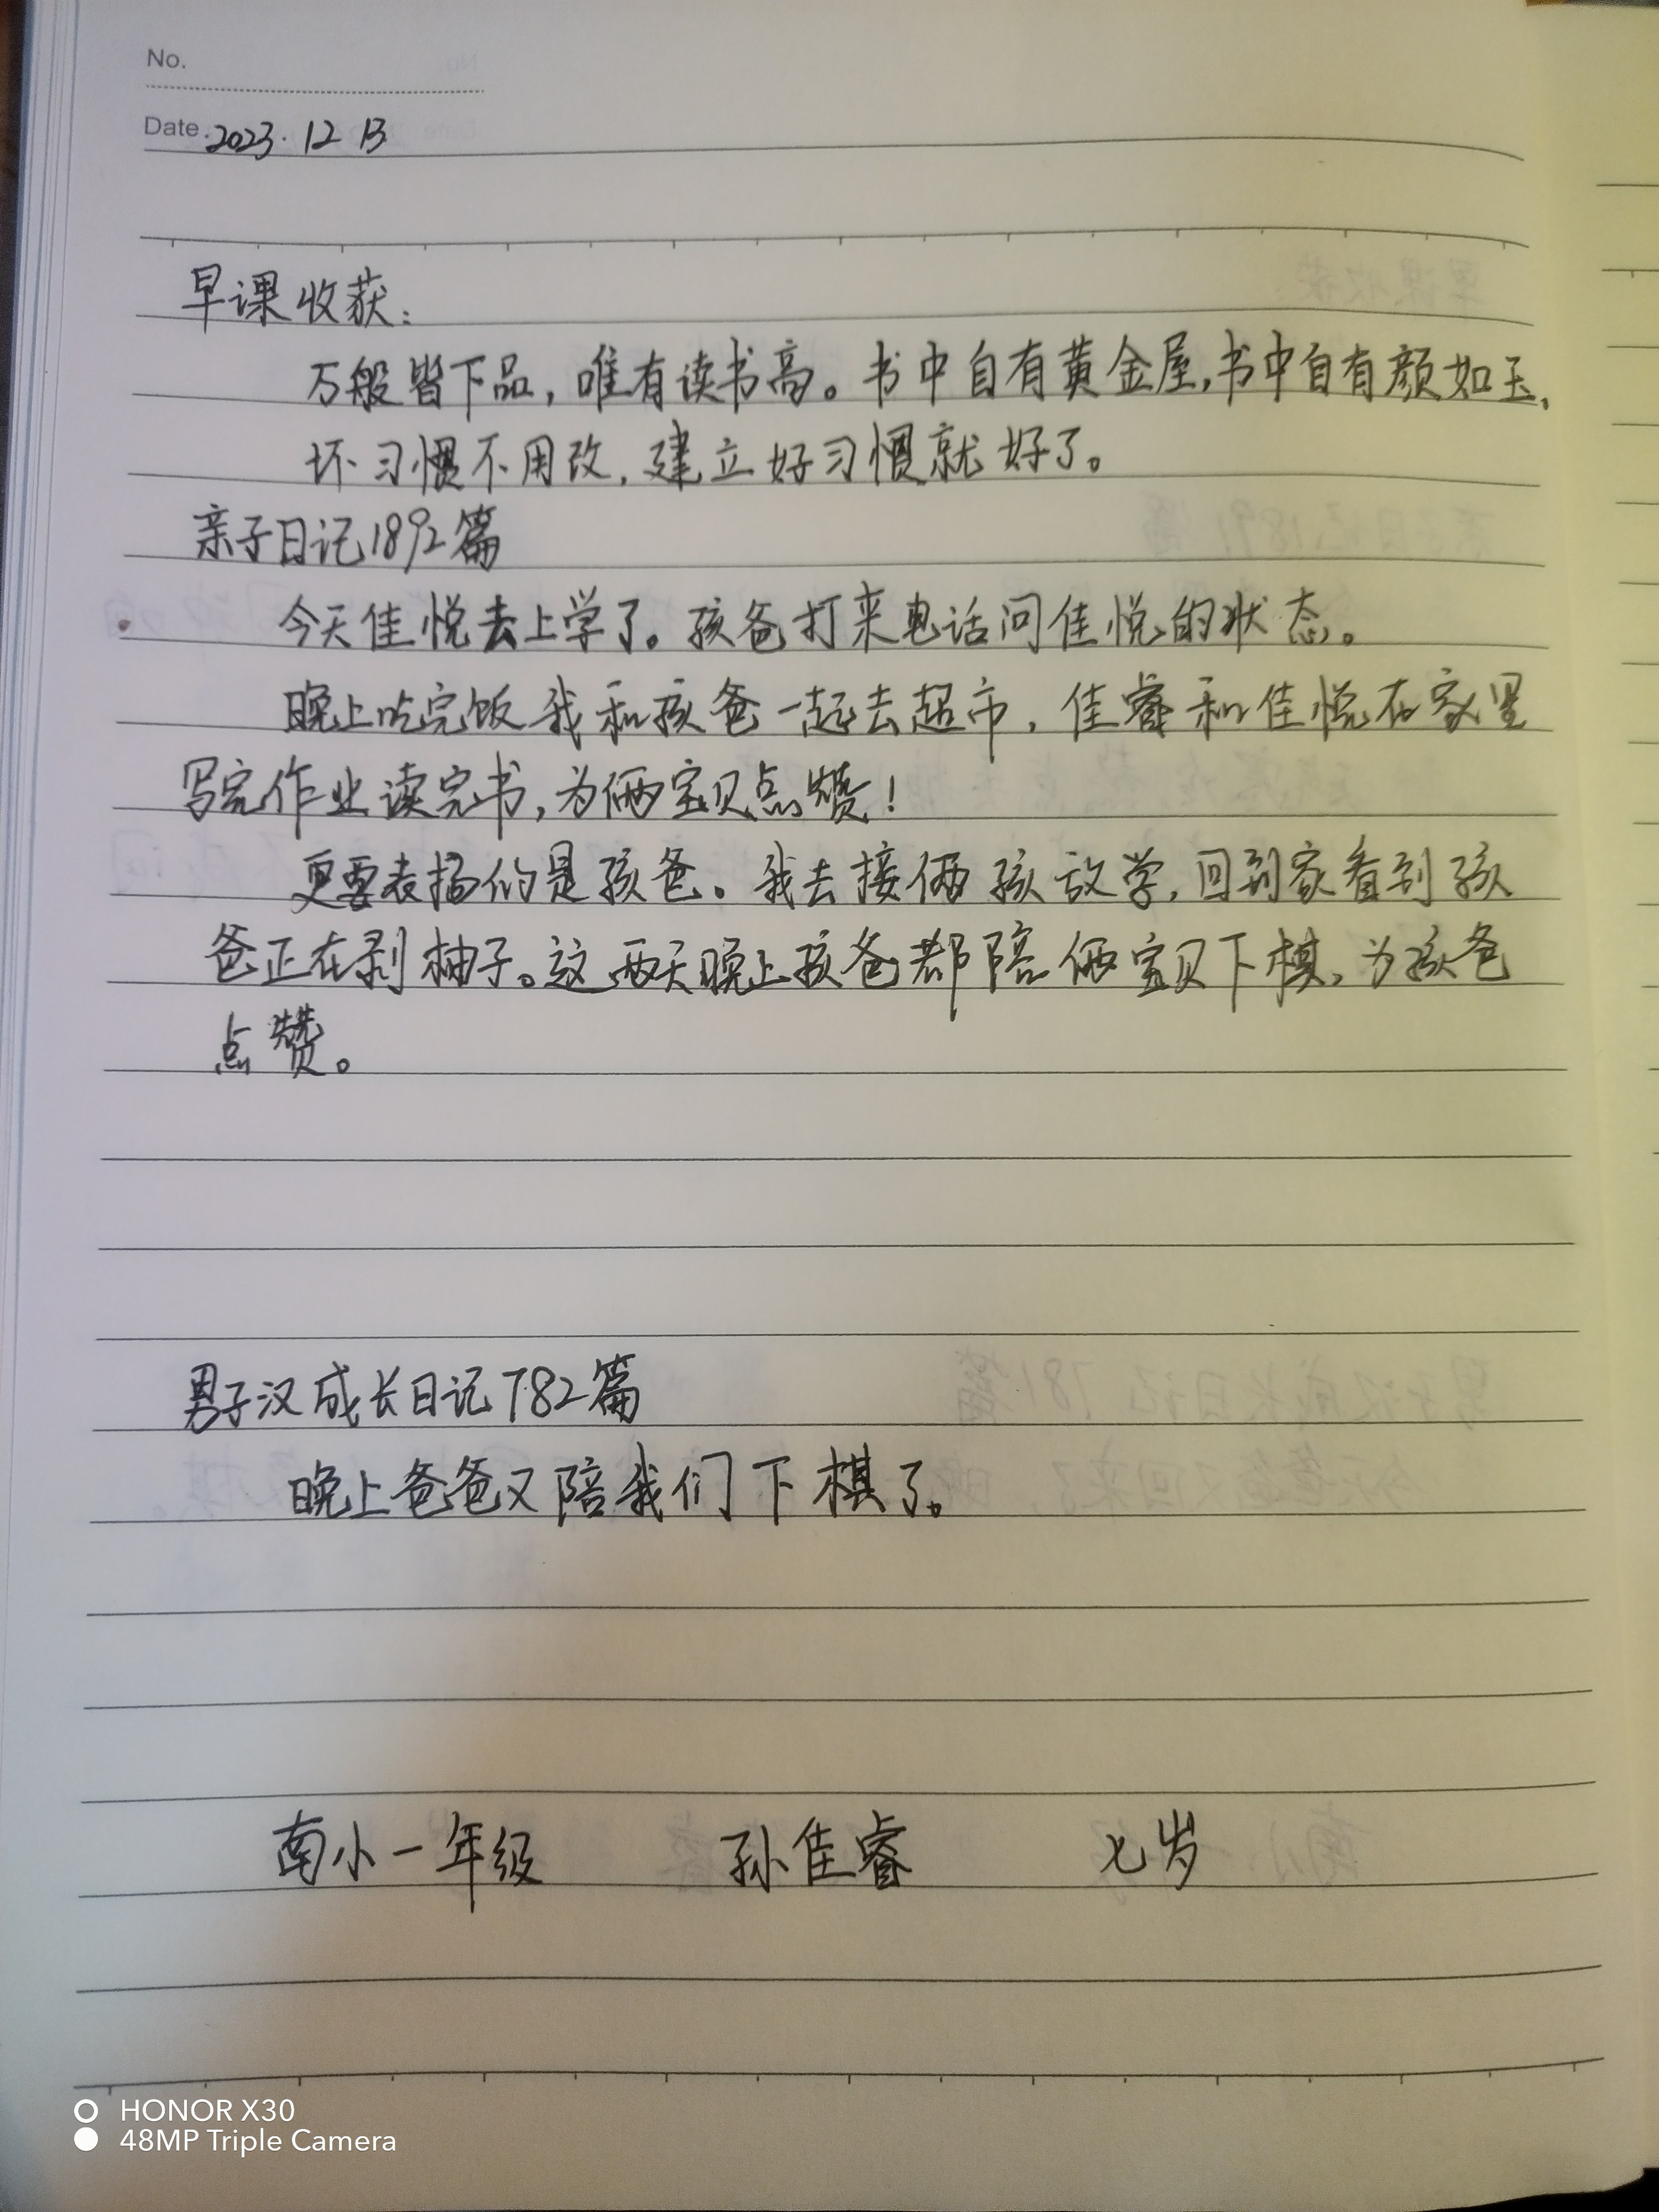 No.
Date. 2023. 12 13
早课收获:
万般皆下品,唯有读书高。书中自有黄金屋,书中自有颜如玉,
坏习惯不用改,建立好习惯就好了。
亲子日记1892篇
今天佳悦去上学了。孩爸打来电话问佳悦的状态。
晚上吃完饭我和孩爸一起去超市,佳睿和佳悦在家里
写完作业读完书,为俩宝贝点赞!
更要表扬的是孩爸。我去接俩孩放学,回到家看到孩
爸正在剥柚子。这两天晚上孩爸都陪俩宝贝下棋,为孩爸
点赞。
男子汉成长日记782篇
晚上爸爸又陪我们下棋了。
南小一年级 孙佳睿 七岁
HONOR X30
48MP Triple Camera